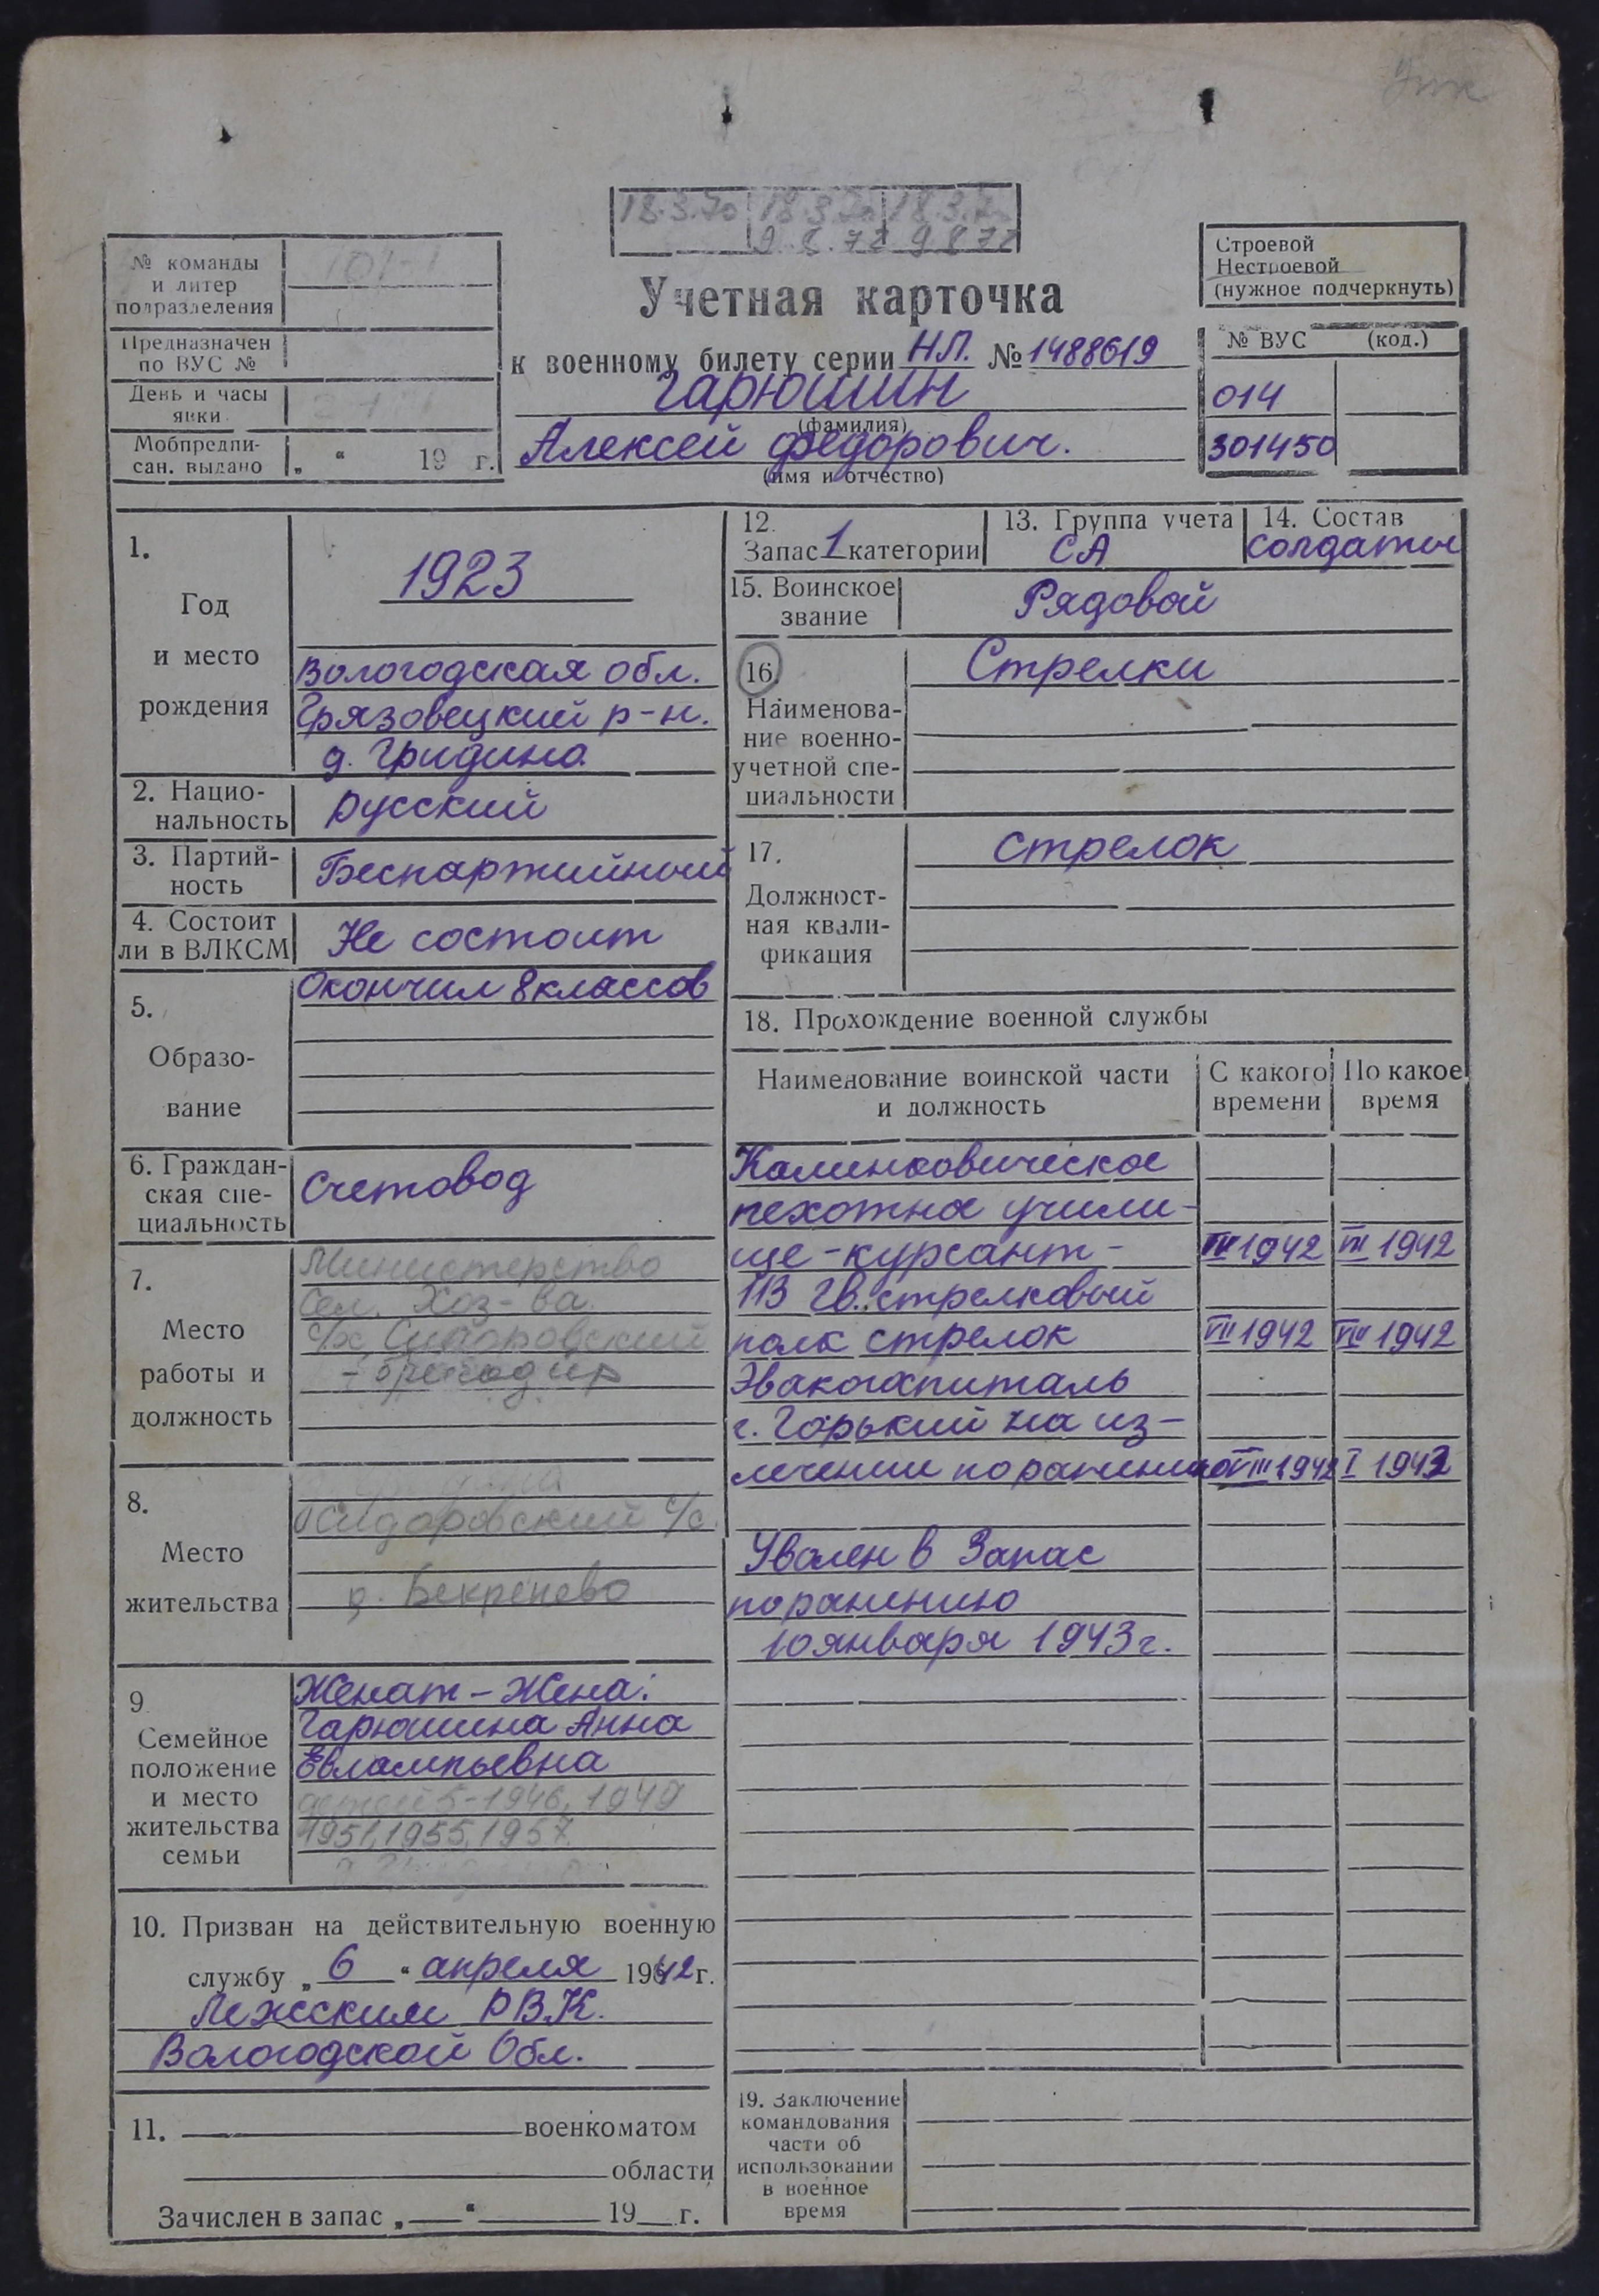 18.3.70 18.3.70 18.3.7
9.8.72 9 8 72
№ команды
и литер
подразделения
Предназначен
по ВУС №
День и часы
явки
Мобпредпи-
сан. выдано „ “ 19 г.
Учетная карточка
к военному билету серии НП. № 1488619
Гарюшин
(фамилия)
Алексей Федорович.
(имя и отчество)
Строевой
Нестроевой
(нужное подчеркнуть)
№ ВУС (код.)
014
301450
1.
Год
и место
рождения
1923
Вологодская обл.
Грязовецкий р-н.
д. Гридино
2. Нацио-
нальность
Русский
3. Партий-
ность
Беспартийный
4. Состоит
ли в ВЛКСМ
Не состоит
5.
Образо-
вание
Окончил 8 классов
6. Граждан-
ская спе-
циальность
Счетовод
7.
Место
работы и
должность
Министерство
Сел. Хоз-ва
с/х Сидоровский
- бригадир
8.
Место
жительства
Сидоровский с/с.
д. Бекренево
9
Семейное
положение
и место
жительства
семьи
Женат - Жена:
Гарюшина Анна
Евлампьевна
детей 5-1946, 1949
1951, 1955, 1957
10. Призван на действительную военную
службу „ 6 “ апреля 1942 г.
Лежским РВК.
Вологодской Обл.
11. военкоматом
области
Зачислен в запас „ “ 19 г.
12.
Запас 1 категории
13. Группа учета
СА
14. Состав
солдаты
15. Воинское
звание
Рядовой
16.
Наименова-
ние военно-
учетной спе-
циальности
Стрелки
17.
Должност-
ная квали-
фикация
стрелок
18. Прохождение военной службы
Наименование воинской части
и должность
С какого
времени
По какое
время
Калинковическое
пехотное учили-
ще - курсант - 1942 VII 1942
113 гв. стрелковый
полк стрелок VII 1942 VIII 1942
Эвакогоспиталь
г. Горький на из-
лечении по ранению VIII 1942 I 1943
Уволен в Запас
по ранению
10 января 1943 г.
19. Заключение
командования
части об
использовании
в военное
время